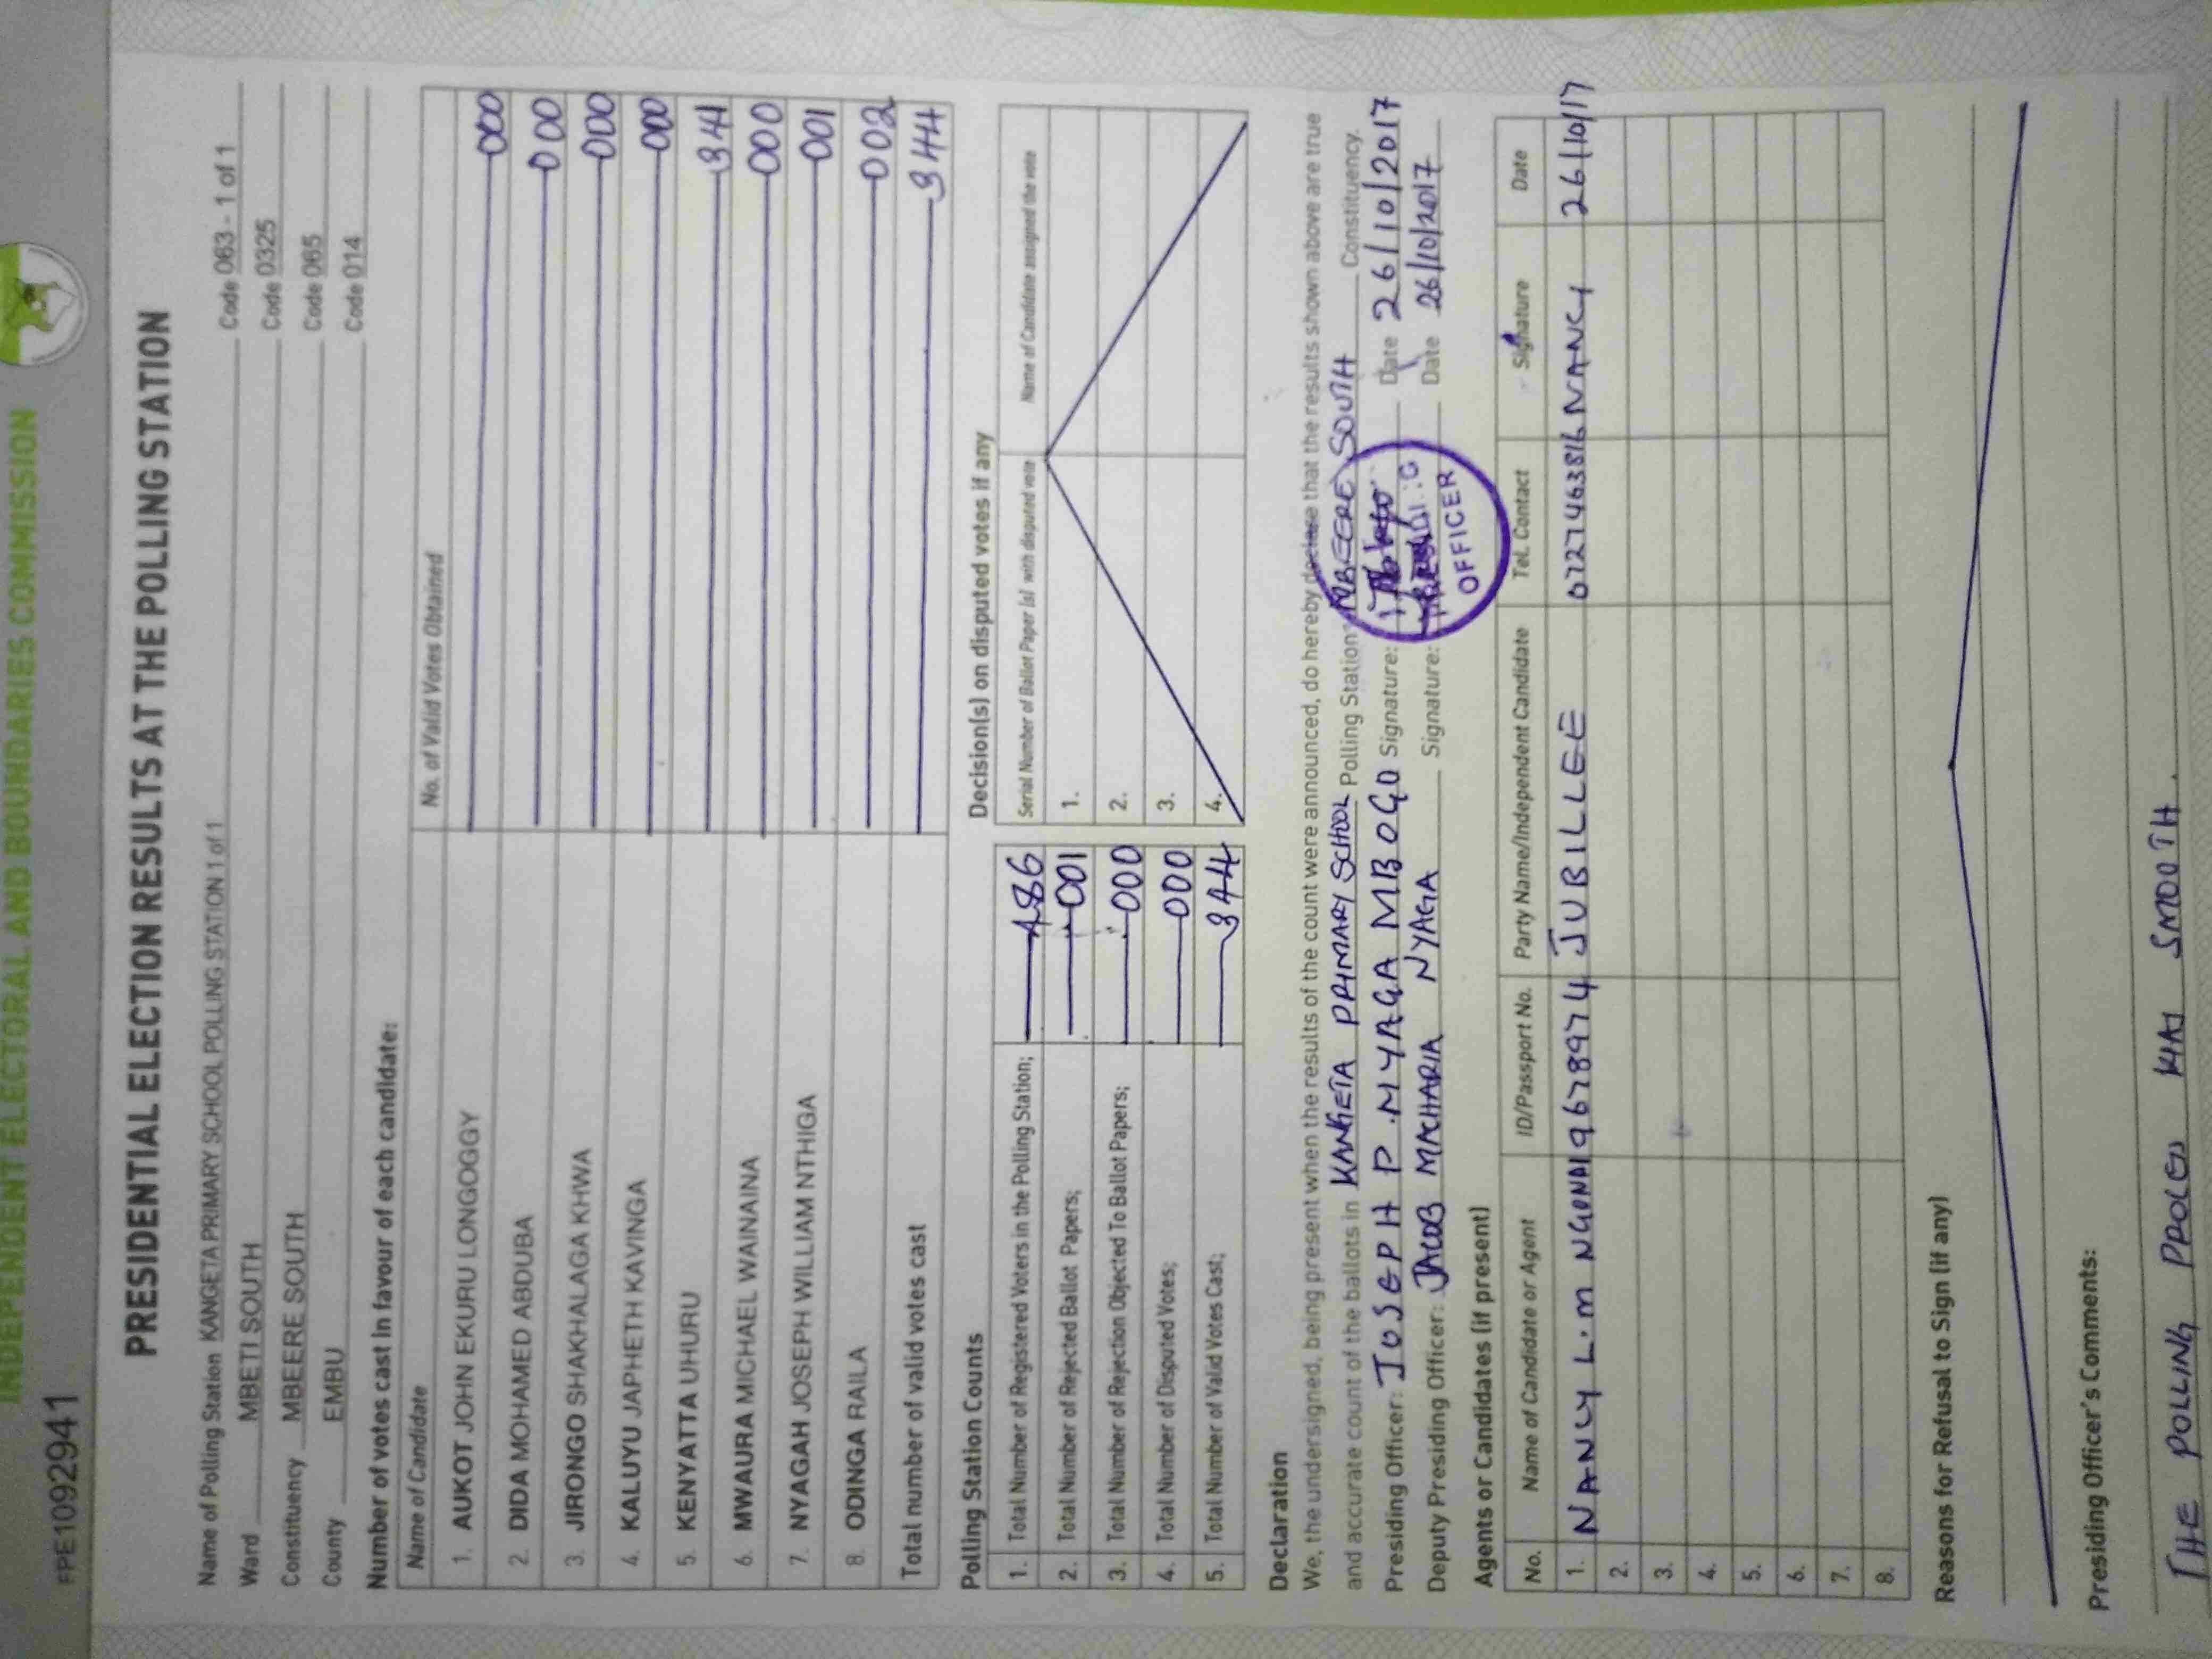 INDEPENDENT ELECTORAL AND BOUNDARIES COMMISSION
FPE1092941
PRESIDENTIAL ELECTION RESULTS AT THE POLLING STATION
Name of Polling Station KANGETA PRIMARY SCHOOL POLLING STATION 1 of 1 Code 063 - 1 of 1
Ward MBETI SOUTH Code 0325
Constituency MBEERE SOUTH Code 065
County EMBU Code 014
Number of votes cast in favour of each candidate:
Name of Candidate No. of Valid Votes Obtained
1. AUKOT JOHN EKURU LONGOGGY 000
2. DIDA MOHAMED ABDUBA 000
3. JIRONGO SHAKHALAGA KHWA 000
4. KALUYU JAPHETH KAVINGA 000
5. KENYATTA UHURU 341
6. MWAURA MICHAEL WAINAINA 000
7. NYAGAH JOSEPH WILLIAM NTHIGA 001
8. ODINGA RAILA 002
Total number of valid votes cast 344
Polling Station Counts
1. Total Number of Registered Voters in the Polling Station; 486
2. Total Number of Rejected Ballot Papers; 001
3. Total Number of Rejection Objected To Ballot Papers; 000
4. Total Number of Disputed Votes; 000
5. Total Number of Valid Votes Cast; 344
Decision(s) on disputed votes if any
Serial Number of Ballot Paper (s) with disputed vote Name of Candidate assigned the vote
1.
2.
3.
4.
Declaration
We, the undersigned, being present when the results of the count were announced, do hereby declare that the results shown above are true
and accurate count of the ballots in KANGETA PRIMARY SCHOOL Polling Station MBEERE SOUTH Constituency.
Presiding Officer: JOSEPH P. NYAGA MBOGO Signature: Date 26/10/2017
Deputy Presiding Officer: JACOB MACHARIA NYAGA Signature: Date 26/10/2017
OFFICER
Agents or Candidates (if present)
No. Name of Candidate or Agent ID/Passport No. Party Name/Independent Candidate Tel. Contact Signature Date
1. NANCY L.M NGONDI 9678974 JUBILLEE 0727463816 NANCY 26/10/17
2.
3.
4.
5.
6.
7.
8.
Reasons for Refusal to Sign (if any)
Presiding Officer's Comments:
THE POLLING SMOOTH.